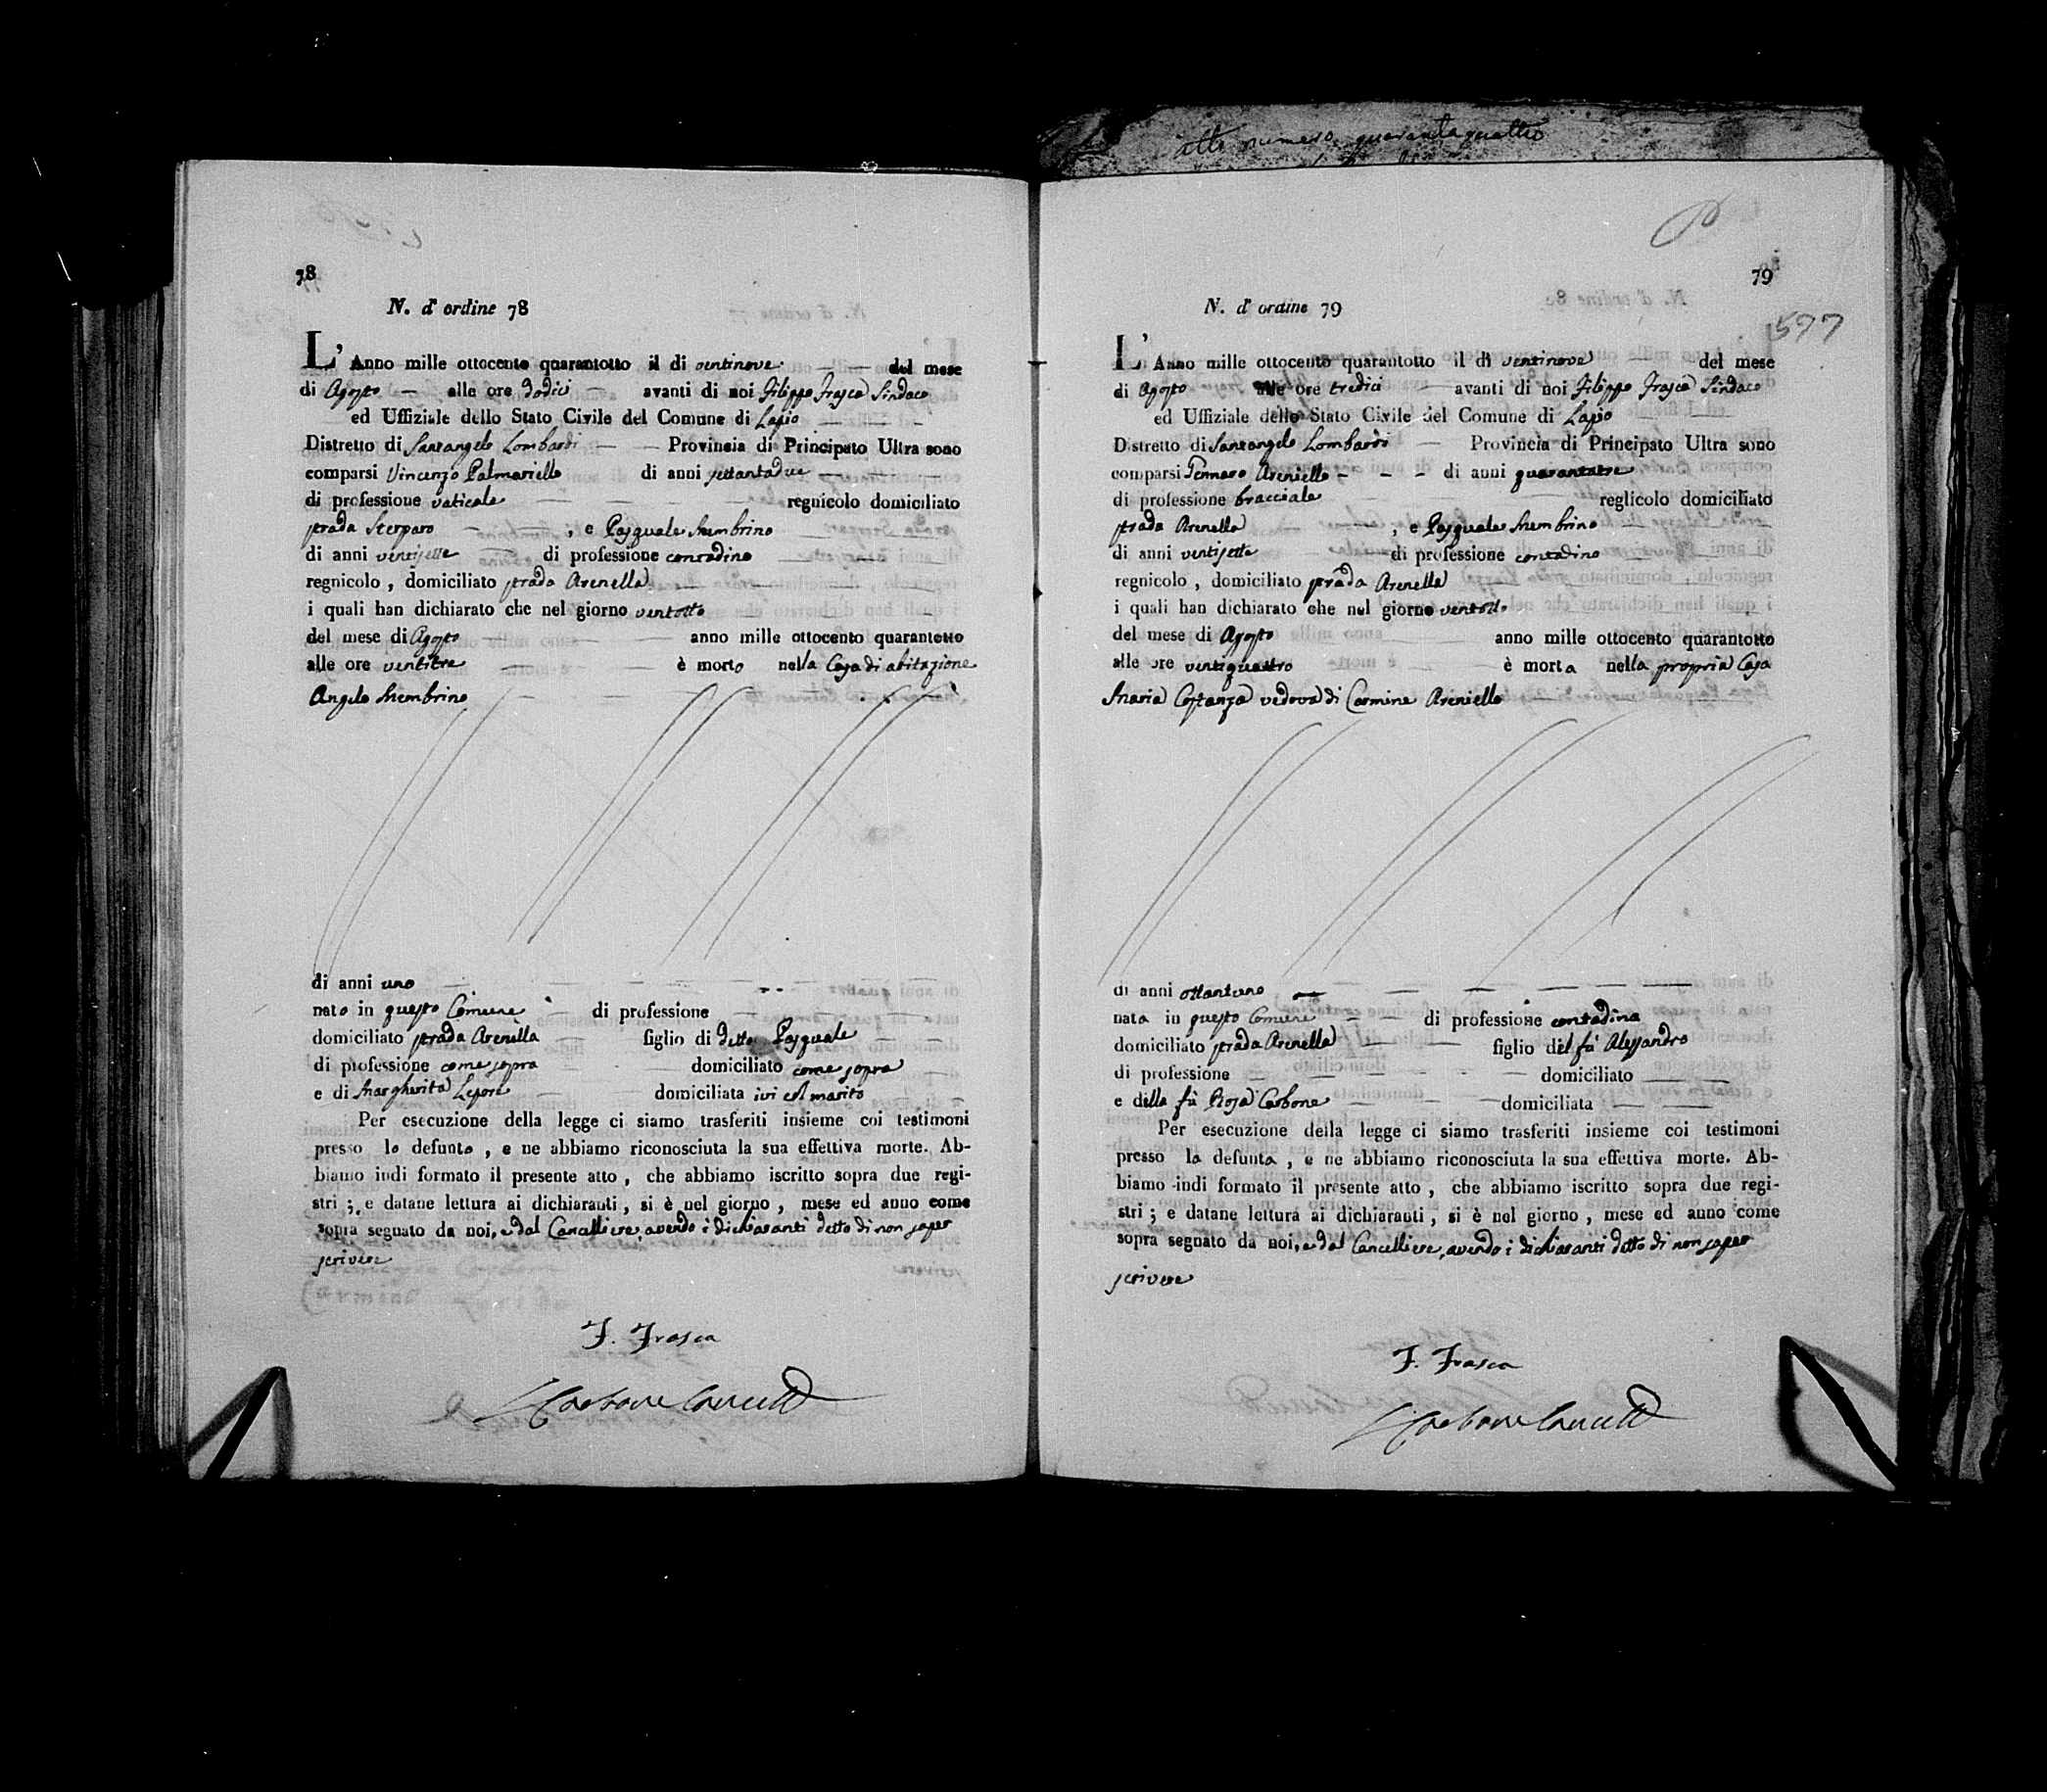 atto numero quarantaquattro
78
N. d' ordine 78
L' Anno mille ottocento quarantotto il di ventinove del mese
di Agosto alle ore dodici avanti di noi Filippo Frasca Sindaco
ed Uffiziale dello Stato Civile del Comune di Lapio
Distretto di Santangelo Lombardi Provincia di Principato Ultra sono
comparsi Vincenzo Palmariello di anni settantadue
di professione vaticale regnicolo domiciliato
strada Sterparo , e Pasquale Membrino
di anni ventisette di professione contadino
regnicolo , domiciliato strada Arenella
i quali han dichiarato che nel giorno ventotto
del mese di Agosto anno mille ottocento quarantotto
alle ore ventitre è morto nella Casa di abitazione
Angelo Membrino
di anni uno
nato in questo Comune di professione
domiciliato strada Arenella figlio di detto Pasquale
di professione come sopra domiciliato come sopra
e di Margherita Lepore domiciliata ivi col marito
Per esecuzione della legge ci siamo trasferiti insieme coi testimoni
presso lo defunto , e ne abbiamo riconosciuta la sua effettiva morte. Ab-
biamo indi formato il presente atto , che abbiamo iscritto sopra due regi-
stri ; e datane lettura ai dichiaranti , si è nel giorno , mese ed anno come
sopra segnato da noi, e dal Cancelliere, avendo i dichiaranti detto di non saper
scrivere
F. Frasca
Carbone Cancell
79
577
N. d' ordine 79
L' Anno mille ottocento quarantotto il di ventinove del mese
di Agosto alle ore tredici avanti di noi Filippo Frasca Sindaco
ed Uffiziale dello Stato Civile del Comune di Lapio
Distretto di Santangelo Lombardi Provincia di Principato Ultra sono
comparsi Gennaro Areniello di anni quarantatre
di professione bracciale reglicolo domiciliato
strada Arenella , e Pasquale Membrino
di anni ventisette di professione contadino
regnicolo , domiciliato strada Arenella
i quali han dichiarato che nel giorno ventotto
del mese di Agosto anno mille ottocento quarantotto
alle ore ventiquattro è morta nella propria Casa
Maria Costanza vedova di Carmine Areniello
di anni ottantuno
nata in questo Comune di professione contadina
domiciliato strada Arenella figlio del fù Alessandro
di professione domiciliato
e della fù Rosa Carbone domiciliata
Per esecuzione della legge ci siamo trasferiti insieme coi testimoni
presso la defunta , e ne abbiamo riconosciuta la sua effettiva morte. Ab-
biamo indi formato il presente atto , che abbiamo iscritto sopra due regi-
stri ; e datane lettura ai dichiaranti , si è nel giorno , mese ed anno come
sopra segnato da noi, e dal Cancelliere, avendo i dichiaranti detto di non saper
scrivere
F. Frasca
Carbone Cancell